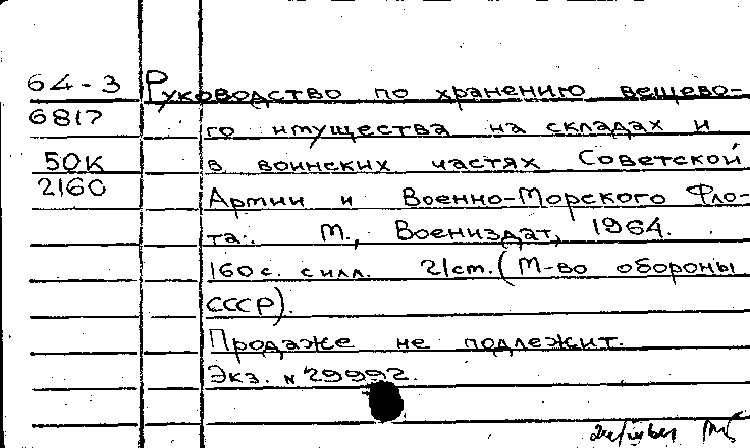 64-3 Руководство по хранению вещево-
6817 го имущества на складах и
50к в воинских частях Советской
2160 Армии и Военно-Морского Фло-
та. М., Воениздат, 1964.
160 с. с илл. 21 cm. (М-во обороны
СССР).
Продаже не подлежит.
Экз. № 29992.